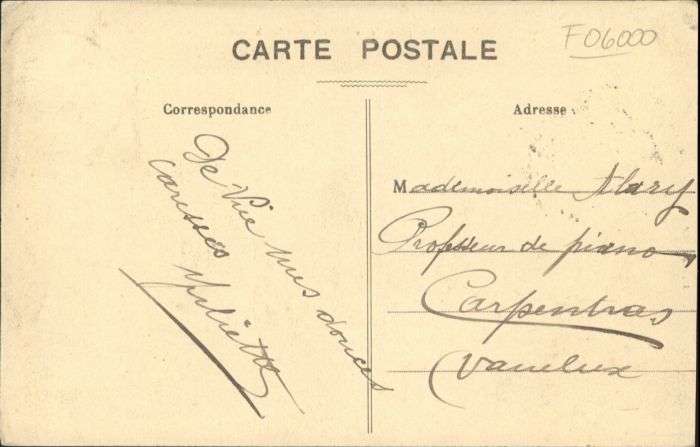 F06000
CARTE POSTALE
Correspondance
Adresse
De Vic mes douces
caresses
Juliette
Mademoiselle Alary
Professeur de piano
Carpentras
Vaucluse